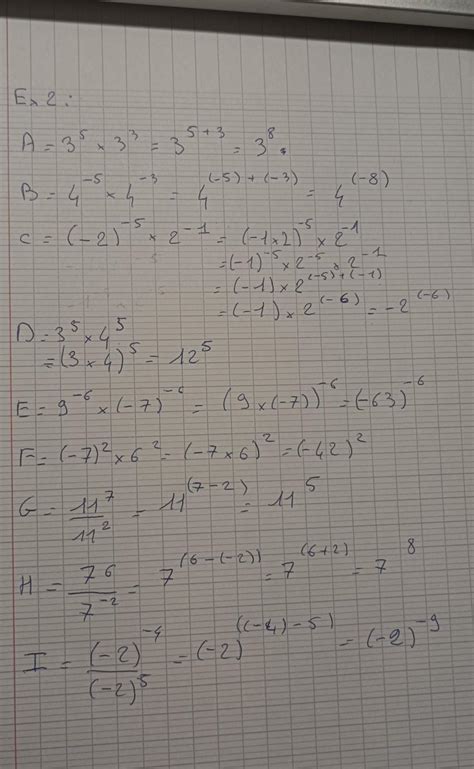 Ex 2 :
A = 3^5 × 3^3 = 3^{5+3} = 3^8.
B = 4^{-5} × 4^{-3} = 4^{(-5)+(-3)} = 4^{(-8)}
C = (-2)^{-5} × 2^{-1} = (-1×2)^{-5} × 2^{-1}
= (-1)^{-5} × 2^{-5} × 2^{-1}
= (-1) × 2^{(-5)+(-1)}
= (-1) × 2^{(-6)} = -2^{(-6)}
D = 3^5 × 4^5
= (3 × 4)^5 = 12^5
E = 9^{-6} × (-7)^{-6} = (9 × (-7))^{-6} = (-63)^{-6}
F = (-7)^2 × 6^2 = (-7 × 6)^2 = (-42)^2
G = 11^7 / 11^2 = 11^{(7-2)} = 11^5
H = 7^6 / 7^{-2} = 7^{(6-(-2))} = 7^{(6+2)} = 7^8
I = (-2)^{-4} / (-2)^5 = (-2)^{((-4)-5)} = (-2)^{-9}